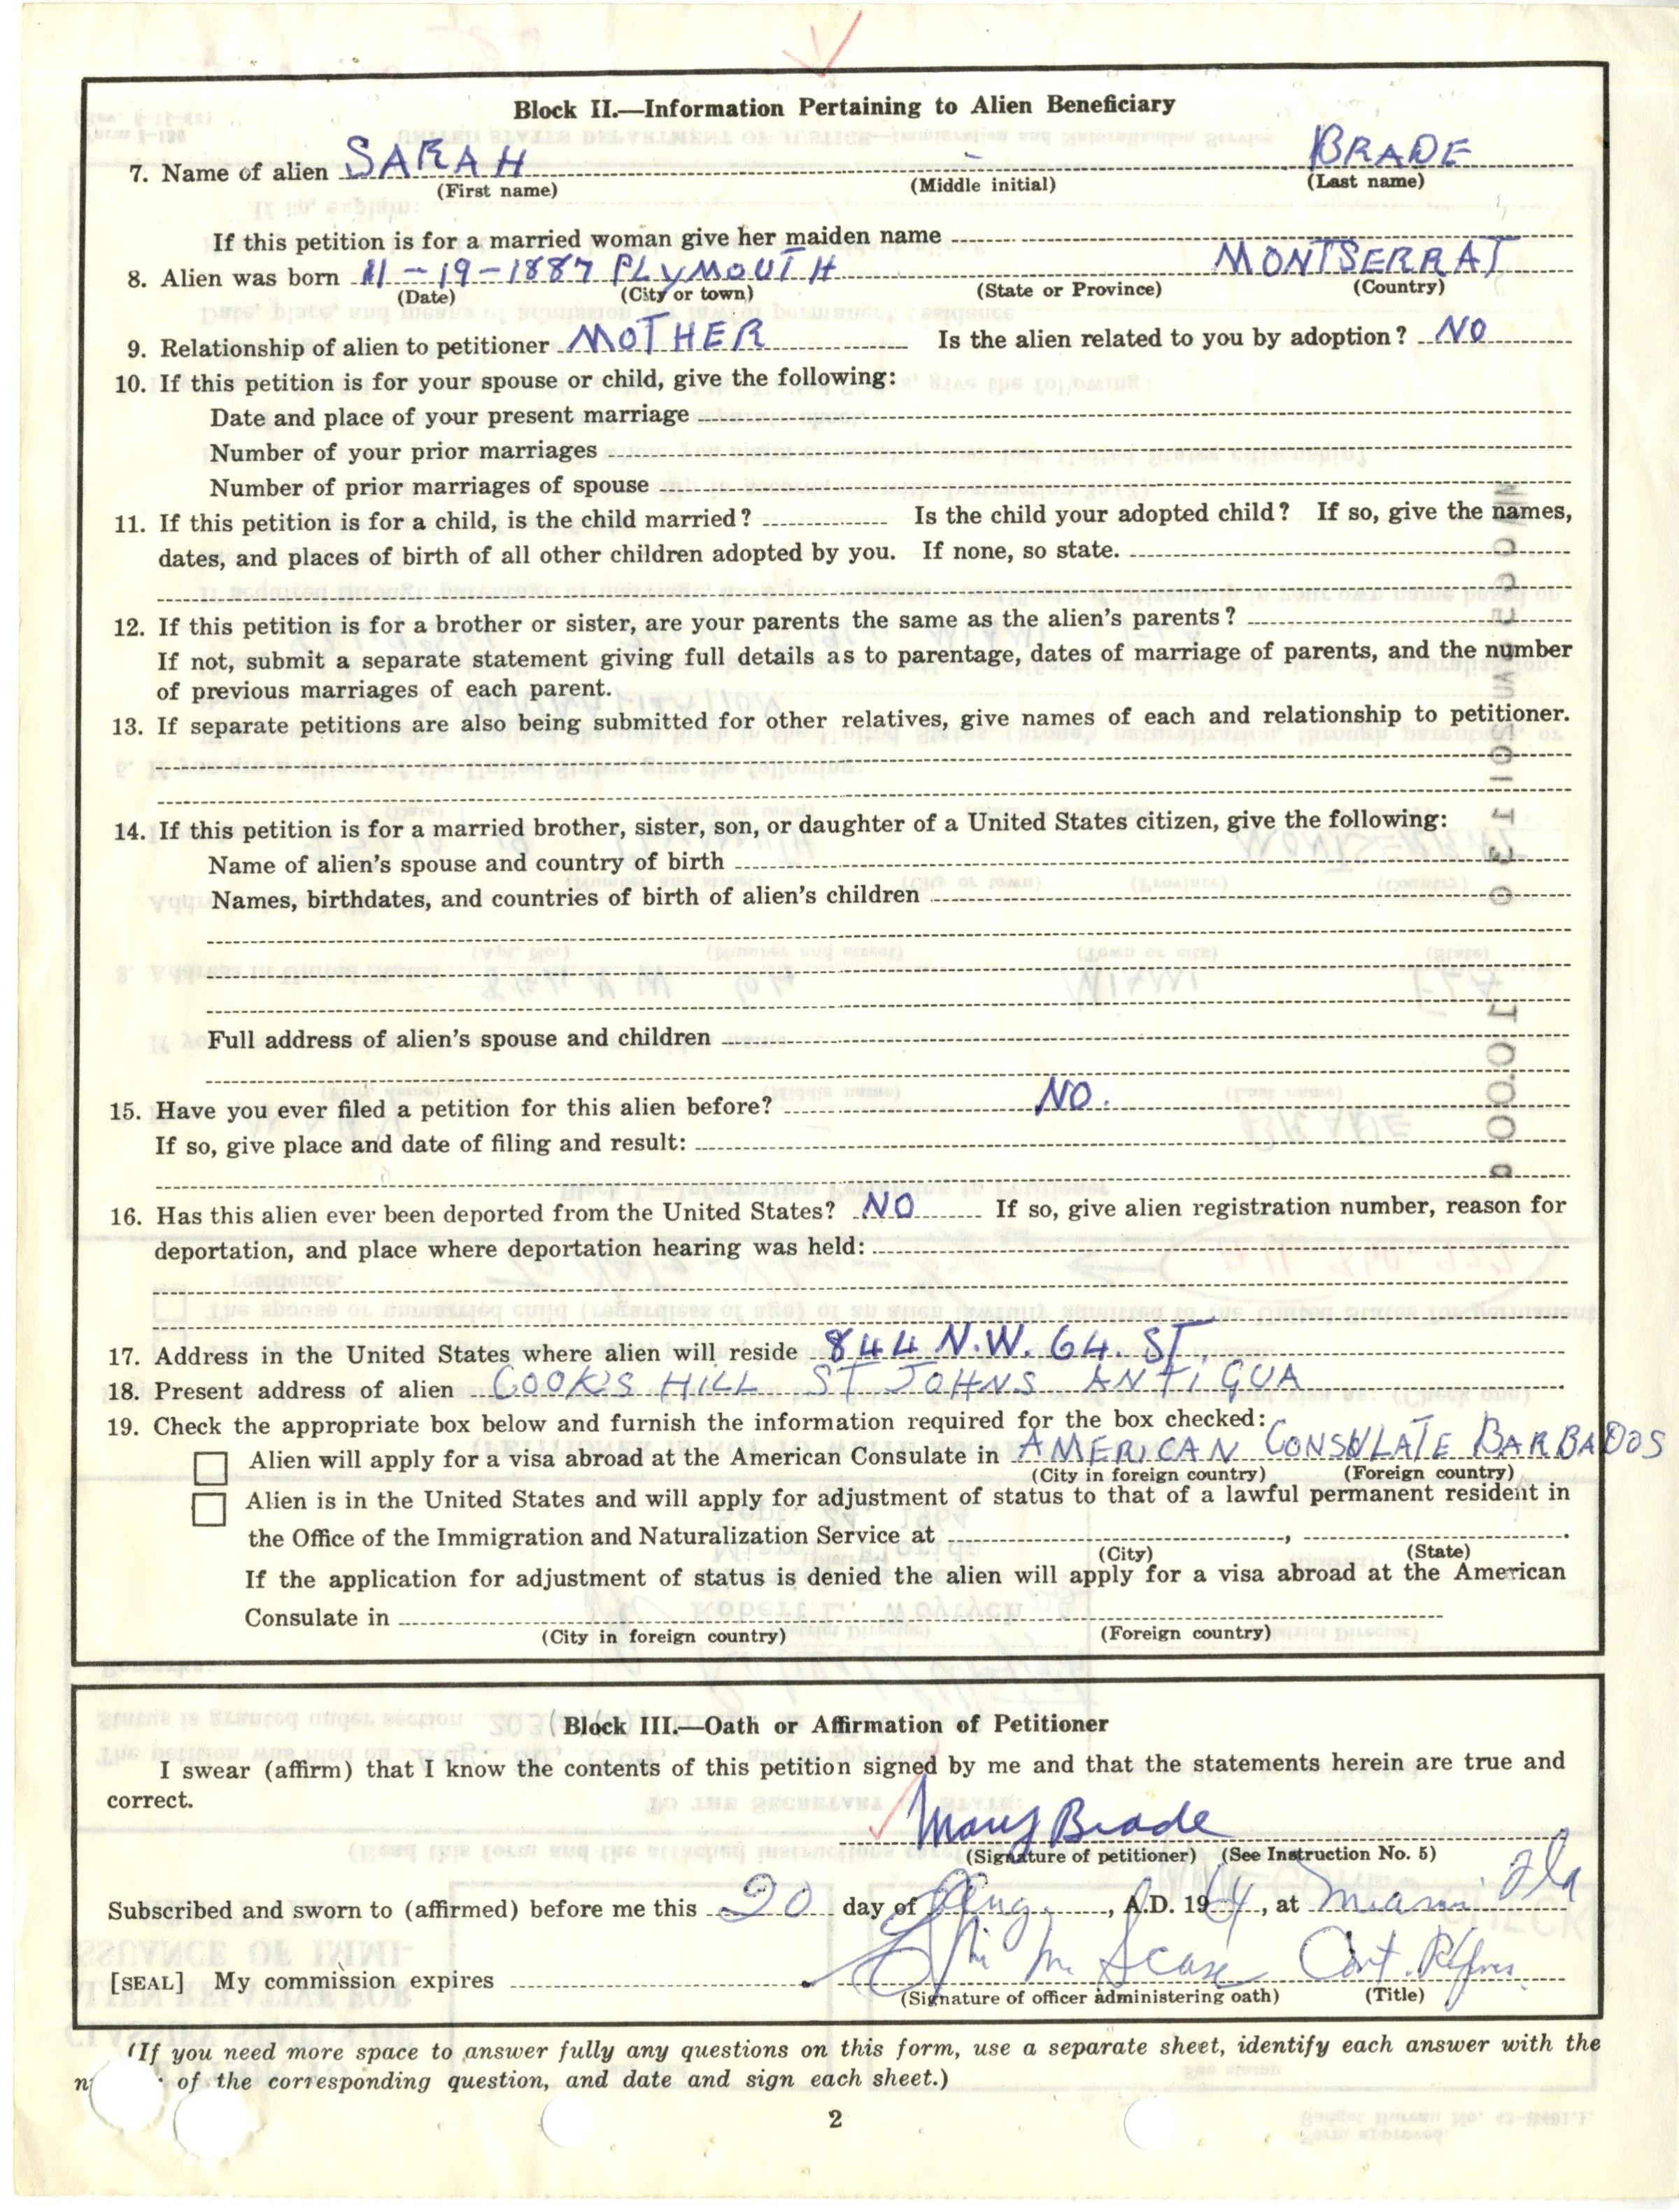 Block II.—Information Pertaining to Alien Beneficiary
7. Name of alien SARAH - BRADE
(First name) (Middle initial) (Last name)
If this petition is for a married woman give her maiden name
8. Alien was born 11-19-1887 PLYMOUTH MONTSERRAT
(Date) (City or town) (State or Province) (Country)
9. Relationship of alien to petitioner MOTHER Is the alien related to you by adoption? NO
10. If this petition is for your spouse or child, give the following:
Date and place of your present marriage
Number of your prior marriages
Number of prior marriages of spouse
11. If this petition is for a child, is the child married? Is the child your adopted child? If so, give the names,
dates, and places of birth of all other children adopted by you. If none, so state.
12. If this petition is for a brother or sister, are your parents the same as the alien's parents?
If not, submit a separate statement giving full details as to parentage, dates of marriage of parents, and the number
of previous marriages of each parent.
13. If separate petitions are also being submitted for other relatives, give names of each and relationship to petitioner.
14. If this petition is for a married brother, sister, son, or daughter of a United States citizen, give the following:
Name of alien's spouse and country of birth
Names, birthdates, and countries of birth of alien's children
Full address of alien's spouse and children
15. Have you ever filed a petition for this alien before? NO.
If so, give place and date of filing and result:
16. Has this alien ever been deported from the United States? NO If so, give alien registration number, reason for
deportation, and place where deportation hearing was held:
17. Address in the United States where alien will reside 844 N.W. 64. ST.
18. Present address of alien COOK'S HILL ST JOHNS ANTIGUA
19. Check the appropriate box below and furnish the information required for the box checked:
Alien will apply for a visa abroad at the American Consulate in AMERICAN CONSULATE BARBADOS
(City in foreign country) (Foreign country)
Alien is in the United States and will apply for adjustment of status to that of a lawful permanent resident in
the Office of the Immigration and Naturalization Service at , .
(City) (State)
If the application for adjustment of status is denied the alien will apply for a visa abroad at the American
Consulate in
(City in foreign country) (Foreign country)
Block III.—Oath or Affirmation of Petitioner
I swear (affirm) that I know the contents of this petition signed by me and that the statements herein are true and
correct.
Mary Brade
(Signature of petitioner) (See Instruction No. 5)
Subscribed and sworn to (affirmed) before me this 20 day of Aug., A.D. 1964, at Miami Fla
[SEAL] My commission expires
(Signature of officer administering oath) (Title)
(If you need more space to answer fully any questions on this form, use a separate sheet, identify each answer with the
of the corresponding question, and date and sign each sheet.)
2